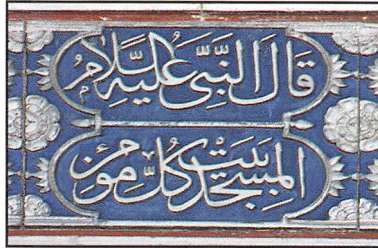 قَالَ النَّبِيُّ عَلَيْهِ السَّلَامُ
الْمَسْجِدُ بَيْتُ كُلِّ مُؤْمِنٍ